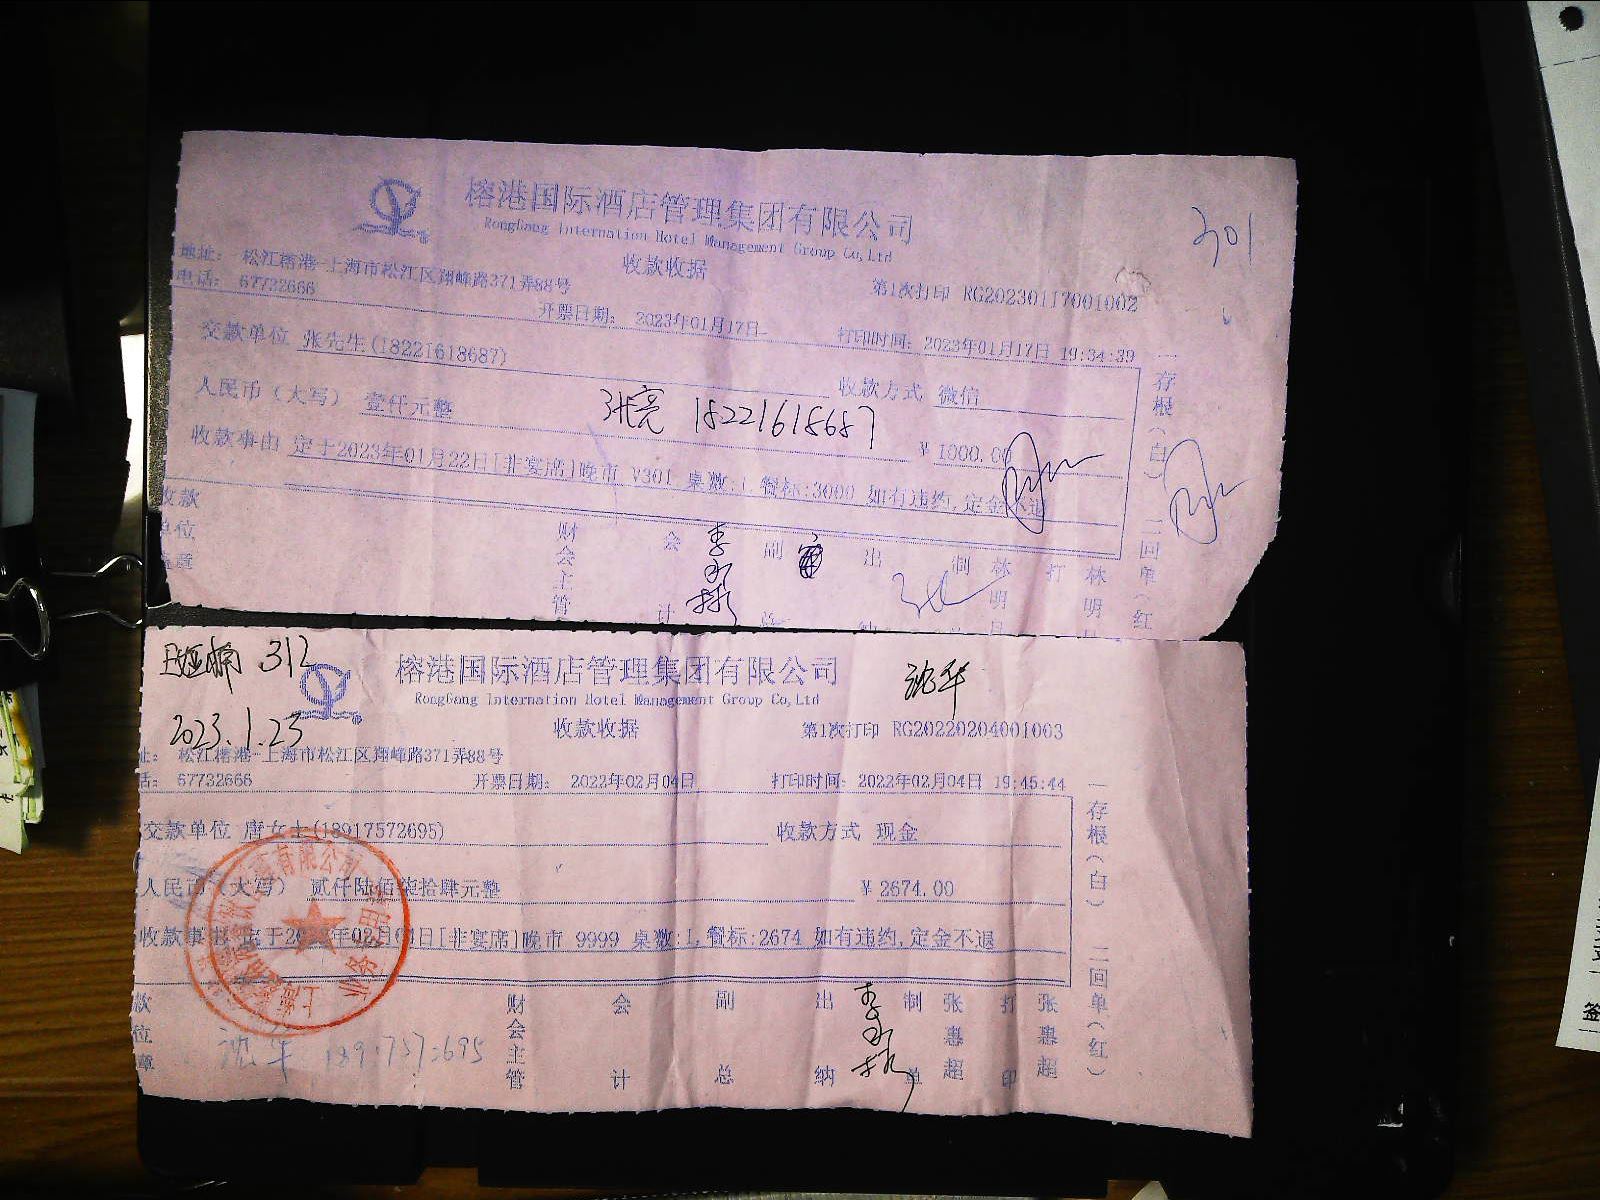 榕港国际酒店管理集团有限公司
RongGang Internation Hotel Management Group Co,Ltd
301
收款收据
地址: 松江榕港-上海市松江区翔峰路371弄88号
电话: 67732666
第1次打印 RG20230117001002
开票日期: 2023年01月17日
打印时间: 2023年01月17日 19:34:39
交款单位 张先生(18221618687)
收款方式 微信
人民币(大写) 壹仟元整
张亮 18221618687
¥ 1000.00
收款事由 定于2023年01月22日[非宴席]晚市 V301 桌数:1,餐标:3000 如有违约,定金不退
收款单位盖章
财会主管
会计
李
副
出
制
林明
打
林明
一存根(白)
二回单(红
312
2023.1.23
榕港国际酒店管理集团有限公司
RongGang Internation Hotel Management Group Co,Ltd
沈华
收款收据
第1次打印 RG20220204001003
址: 松江榕港-上海市松江区翔峰路371弄88号
话: 67732666
开票日期: 2022年02月04日
打印时间: 2022年02月04日 19:45:44
交款单位 唐女士(18917572695)
收款方式 现金
人民币(大写) 贰仟陆佰柒拾肆元整
¥ 2674.00
收款事由 定于2022年02月04日[非宴席]晚市 9999 桌数:1,餐标:2674 如有违约,定金不退
款位章
财会主管
会计
副总
出纳
李
制单
张惠超
打印
张惠超
一存根(白)
二回单(红)
沈华